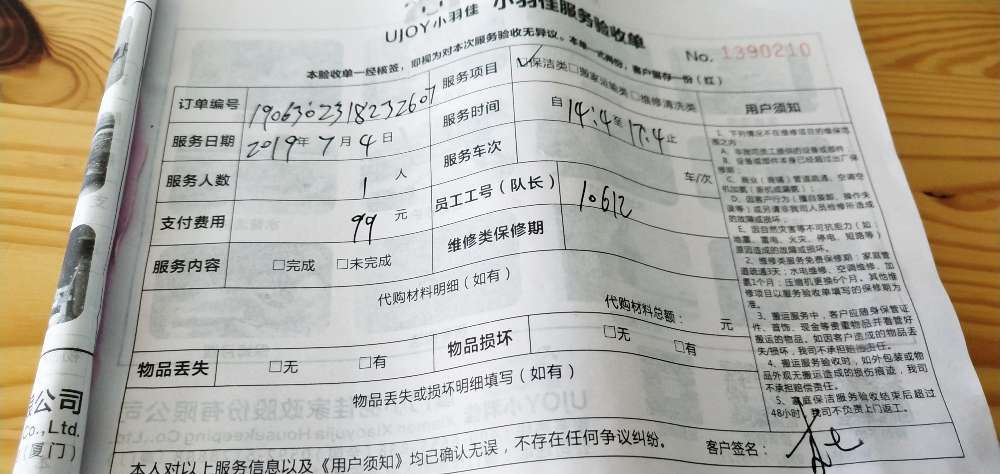 UJOY小羽佳 小羽佳服务验收单
本验收单一经核签，即视为对本次服务验收无异议。本单一式两份，客户留存一份（红）
No. 1390210
订单编号 1906302318232607 服务项目 ☑保洁类□搬家运输类□维修清洗类
服务日期 2019年7月4日 服务时间 自14:4至17:4止
服务人数 1 人 服务车次 车/次
支付费用 99 元 员工工号（队长） 10612
服务内容 □完成 □未完成 维修类保修期
代购材料明细（如有）
代购材料总额： 元
物品丢失 □无 □有 物品损坏 □无 □有
物品丢失或损坏明细填写（如有）
本人对以上服务信息以及《用户须知》均已确认无误，不存在任何争议纠纷。
客户签名：
用户须知
1、下列情况不在维修项目的维保范围之内
A、非我司员工提供的设备或部件
B、设备或部件本身已经超过出厂保修期；
C、商业（商铺）管道疏通、空调空机加氨（新机或漏氨）；
D、因客户行为（擅自装卸、操作失误等）或另请非我司人员检修所造成的故障或损坏。
E、因自然灾害等不可抗能力（如：地震、雷电、火灾、停电、短路等）原因造成的故障或损坏。
2、维修类服务免费保修期：家庭管道疏通3天；水电维修、空调维修、加氨1个月；压缩机更换6个月。其他维修项目以服务验收单填写的保修期为准。
3、搬运服务中，客户应随身保管证件、首饰、现金等贵重物品并看管好搬运的物品。如因客户造成的物品丢失/损坏，我司不承担赔偿责任。
4、搬运服务验收时，如外包装或物品外观无搬运造成的损伤痕迹，我司不承担赔偿责任。
5、家庭保洁服务验收结束后超过48小时，我司不负责上门返工。
公司
Co.,Ltd.
（厦门）